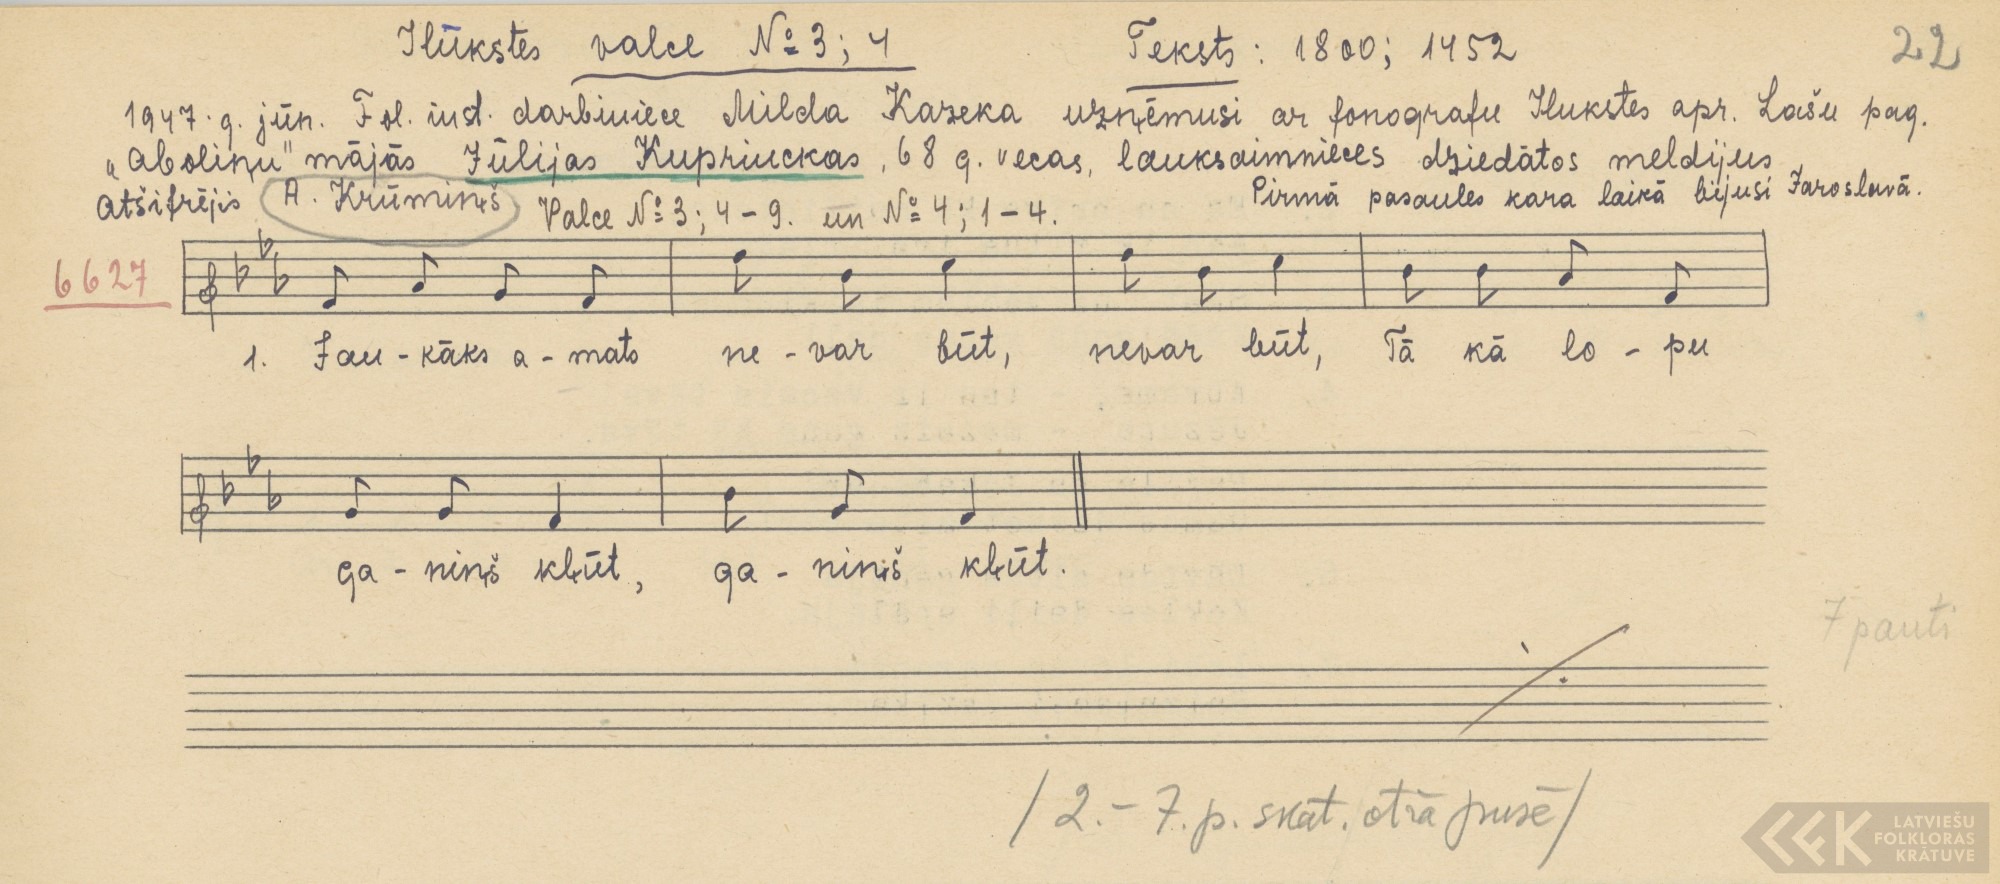 Ilūkstes valce № 3; 4 Teksts: 1800; 1452
22
1947. g. jūn. Fol. inst. darbiniece Milda Kazeka uzņēmusi ar fonografu Ilukstes apr. Lašu pag.
„Aboliņu" mājās Jūlijas Kupriuckas, 68 g. vecas, lauksaimnieces dziedātos meldijus
Atšifrējis A. Krūmiņš Valce № 3; 4-9. un № 4; 1-4. Pirmā pasaules kara laikā bijusi Jaroslavā.
6627
1. Jau-kāks a-mats ne-var būt, nevar būt, Tā kā lo-pu
ga-niņš kļūt, ga-niņš kļūt.
7 panti
/2.-7. p. skat. otrā pusē/
LATVIEŠU
FOLKLORAS
KRĀTUVE